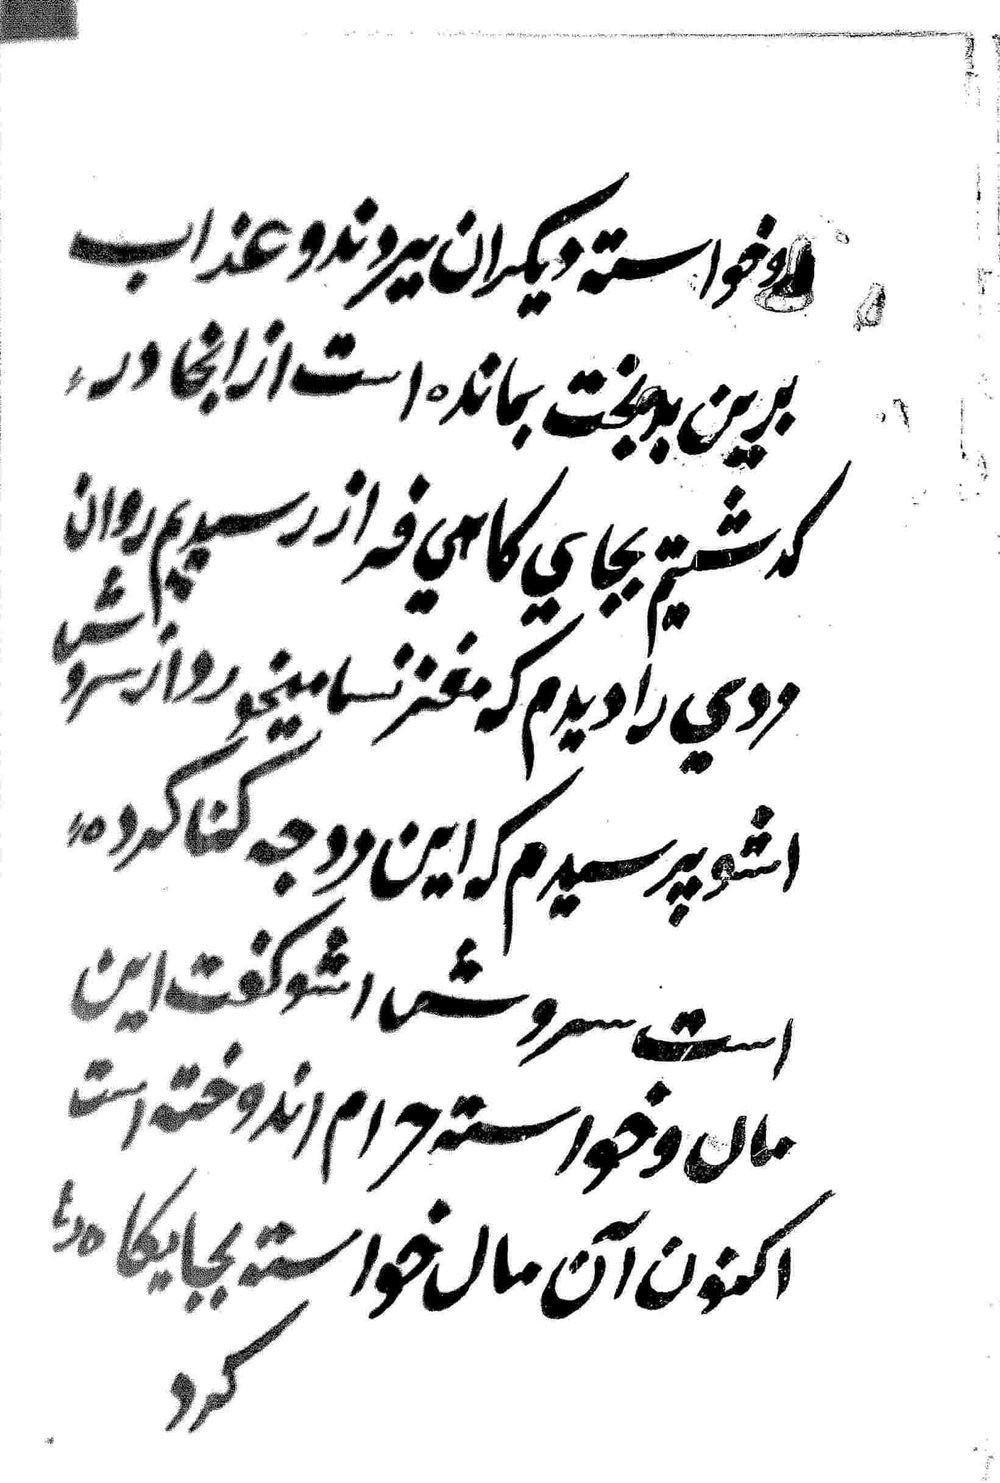 وخواسته دیکران بیروند و عذاب
برین بدبخت بمانده است از انجا در
کدشتیم بجایي کاهي فراز رسیدیم روان
مردي را دیدم که مغز نسا میخورد و از سروش
اشو پرسیدم که این مرد چه کنا کرده
است سروش اشو کفت این
مال و خواسته حرام اندوخته است
اکنون آن مال خواسته بجایکاه
کرد